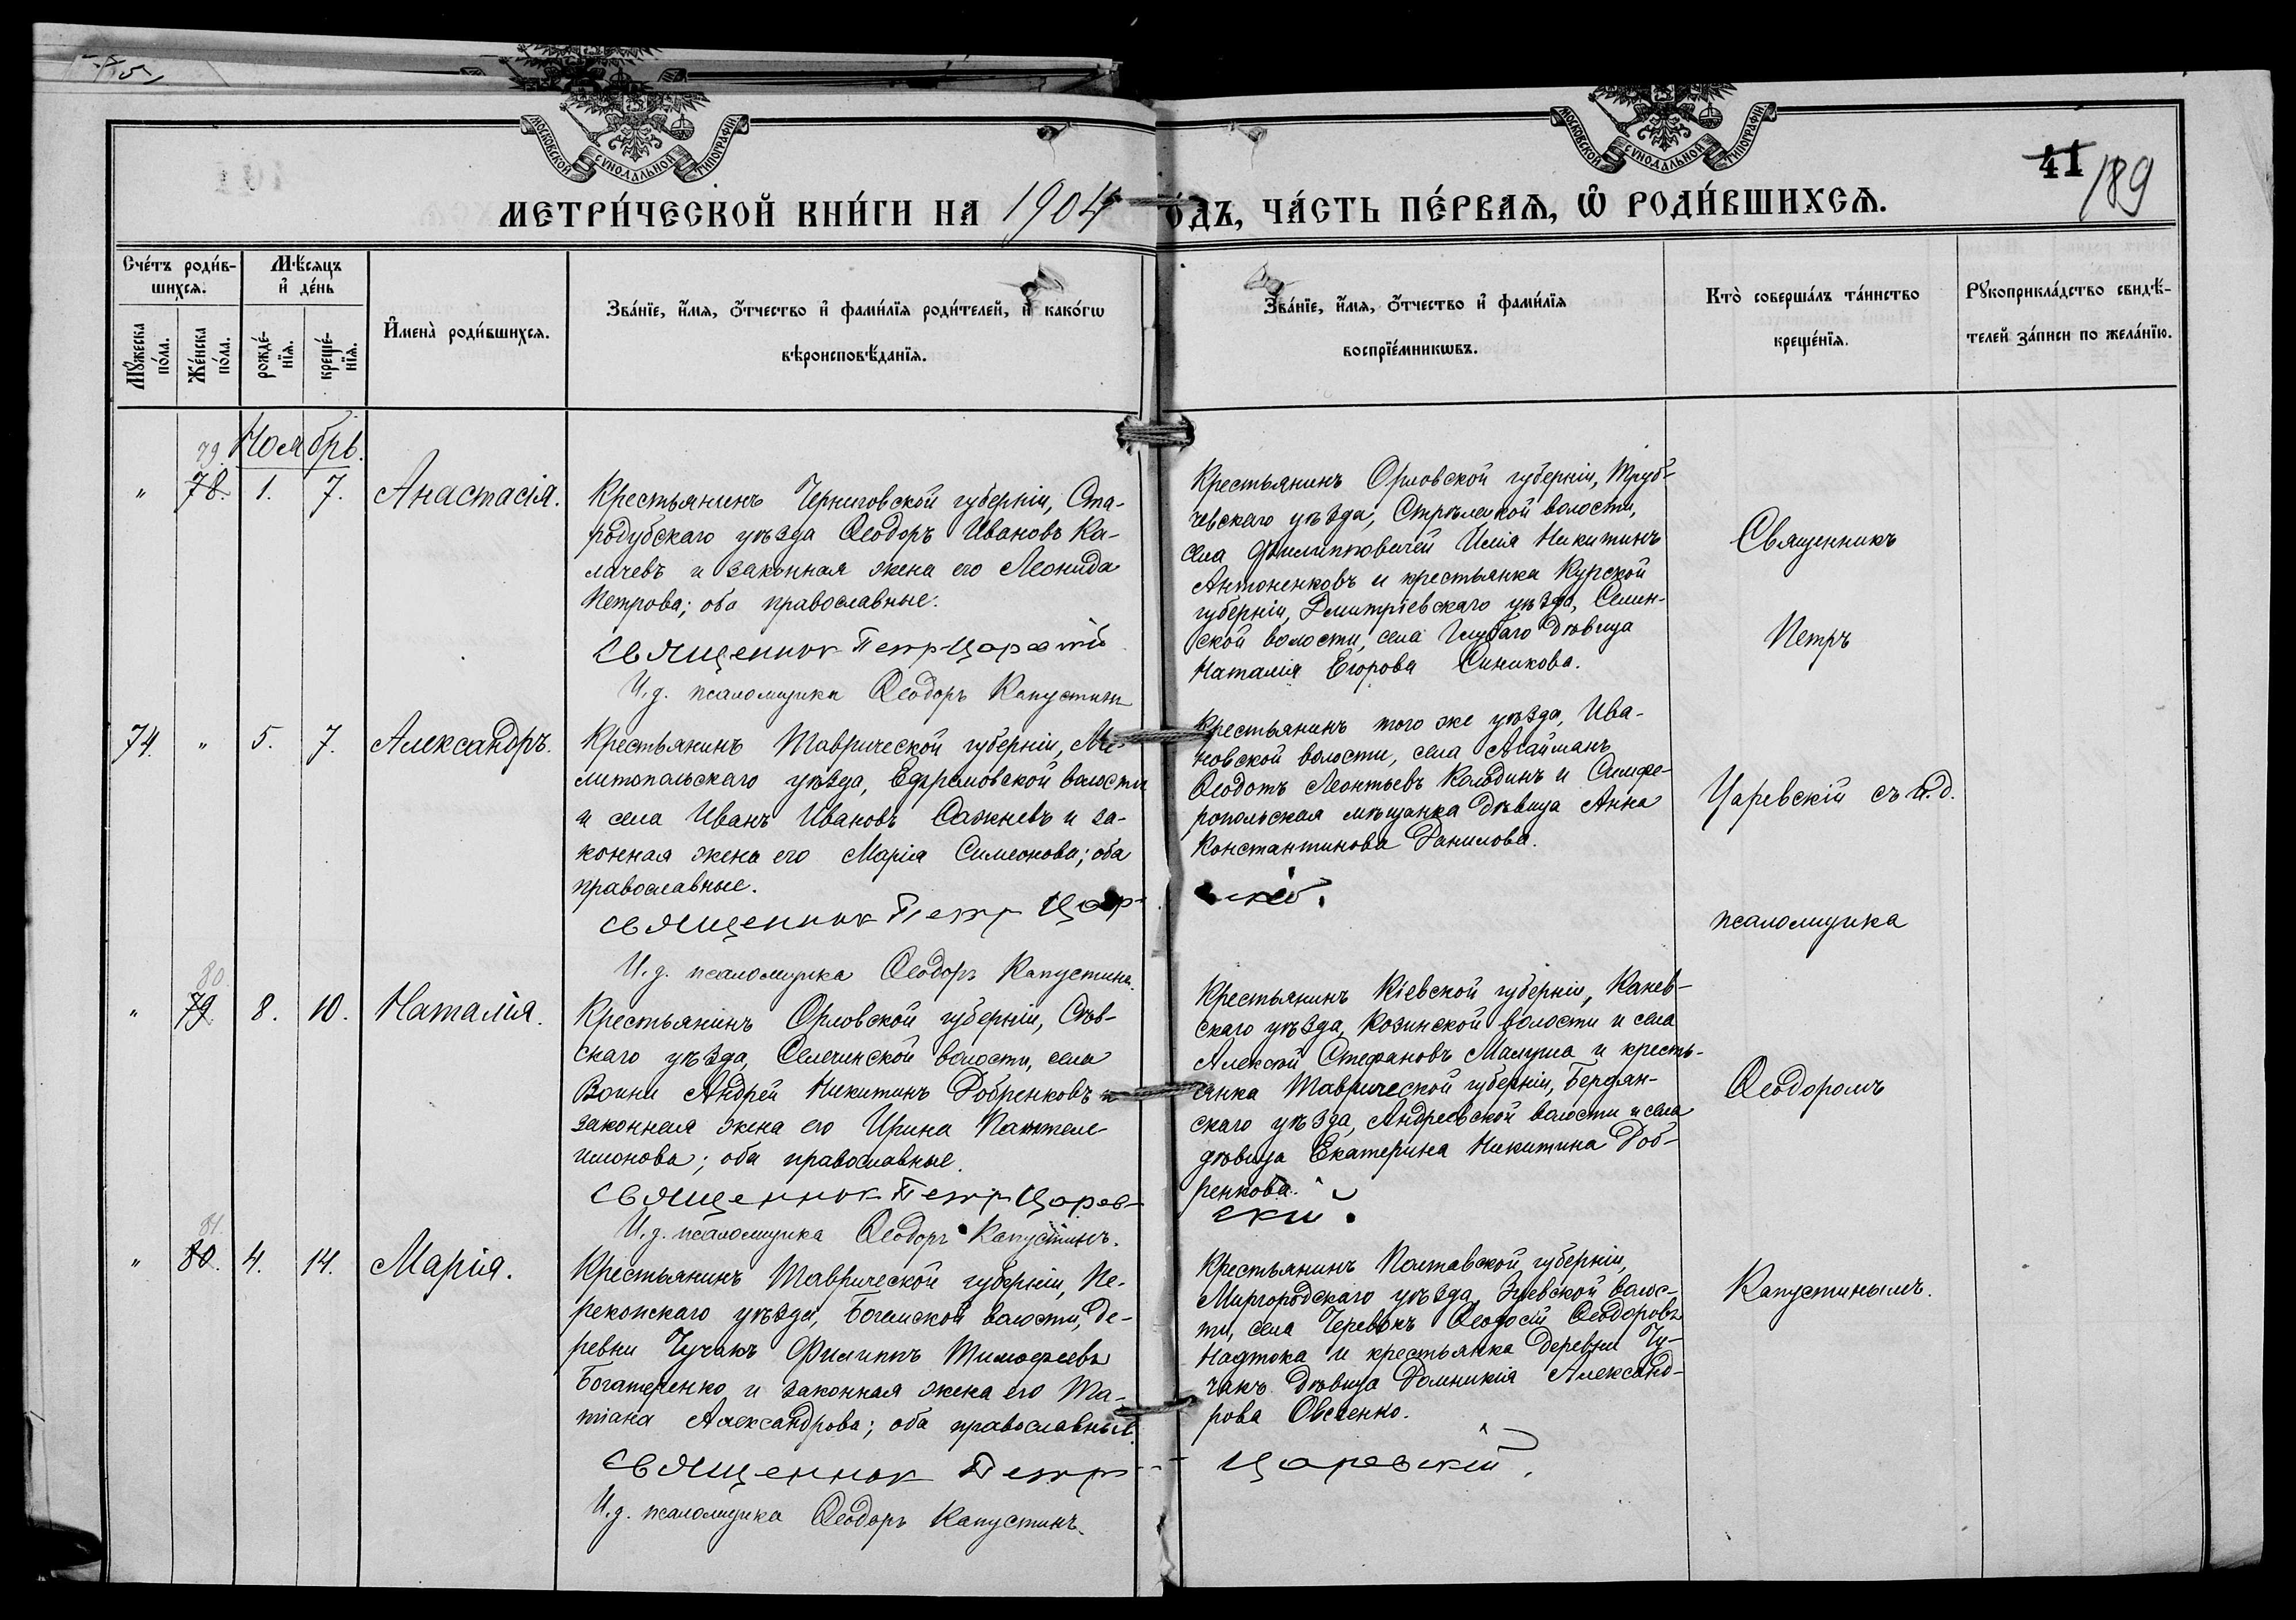 МОСКОВСКОЙ СѴНОДАЛЬНОЙ ТИПОГРАФІИ
МОСКОВСКОЙ СѴНОДАЛЬНОЙ ТИПОГРАФІИ
41
189
МЕТРИ́ЧЕСКОЙ КНИ́ГИ НА 1904 ГО́ДЪ, ЧА́СТЬ ПЕ́РВАѦ, Ѡ҆ РОДИ́ВШИХСѦ.
Сче́тъ роди́в-
шихсѧ.
Мѣ́сѧцъ
и҆ де́нь
Мꙋ́жеска по́ла.
Же́нска по́ла.
рожде́-нїѧ.
креще́-нїѧ.
И҆мена̀ роди́вшихсѧ.
Зва́нїе, и҆́мѧ, ѻ҆́тчество и҆ фами́лїѧ роди́телей, и҆ како́гѡ
вѣроисповѣ́данїѧ.
Зва́нїе, и҆́мѧ, ѻ҆́тчество и҆ фами́лїѧ
воспрїе́мникѡвъ.
Кто̀ соверша́лъ та́инство
креще́нїѧ.
Рꙋкоприкла́дство свидѣ́-
телей за́писи по жела́нїю.
Ноябрь.
79.
" 78. 1. 7. Анастасія.
Крестьянинъ Черниговской губерніи, Ста-
родубскаго уѣзда Ѳеодоръ Ивановъ Ка-
лачевъ и законная жена его Леонида
Петрова; оба православные.
Священник Петр Царевскій
И. д. псаломщика Ѳеодоръ Капустинъ
Крестьянинъ Орловской губерніи, Труб-
чевскаго уѣзда, Стрѣлецкой волости,
села Филипповичей Илія Никитинъ
Антоненковъ и крестьянка Курской
губерніи, Дмитріевскаго уѣзда, Селин-
ской волости, села Глубаго дѣвица
Наталія Егорова Синикова.
74. " 5. 7. Александръ.
Крестьянинъ Таврической губерніи, Ме-
литопольскаго уѣзда, Ефремовской волости
и села Иванъ Ивановъ Сажневъ и за-
конная жена его Марія Симеонова; оба
православные.
Священник Петр Царевскій.
И. д. псаломщика Ѳеодоръ Капустинъ.
Крестьянинъ того же уѣзда, Ива-
новской волости, села Агайманъ
Ѳеодотъ Леонтьевъ Колодинъ и Симфе-
ропольская мѣщанка дѣвица Анна
Константинова Данилова.
80.
" 79. 8. 10. Наталія.
Крестьянинъ Орловской губерніи, Сѣв-
скаго уѣзда, Селечинской волости, села
Воини Андрей Никитинъ Добренковъ и
законная жена его Ирина Пантеле-
имонова; оба православные.
Священник Петр Царев-
ский.
И. д. псаломщика Ѳеодоръ Капустинъ.
Крестьянинъ Кіевской губерніи, Канев-
скаго уѣзда, Козинской волости и села
Алексѣй Стефановъ и кресть-
янка Таврической губерніи, Бердян-
скаго уѣзда, Андреевской волости и села
дѣвица Екатерина Никитина Доб-
ренкова.
81.
" 80. 4. 14. Марія.
Крестьянинъ Таврической губерніи, Пе-
рекопскаго уѣзда, Богемской волости, де-
ревни Чучакъ Филиппъ Тимоѳеевъ
Богатеренко и законная жена его Та-
тіана Александрова; оба православные.
Священник Петр Царевскій.
И. д. псаломщика Ѳеодоръ Капустинъ.
Крестьянинъ Полтавской губерніи,
Миргородскаго уѣзда, Зуевской волос-
ти, села Черевокъ Ѳеодосій Ѳеодоровъ
Надтока и крестьянка деревни Чу-
чакъ дѣвица Домникія Александ-
рова Овсеенко.
Священникъ
Петръ
Царевскій съ и. д.
псаломщика
Ѳеодоромъ
Капустинымъ.